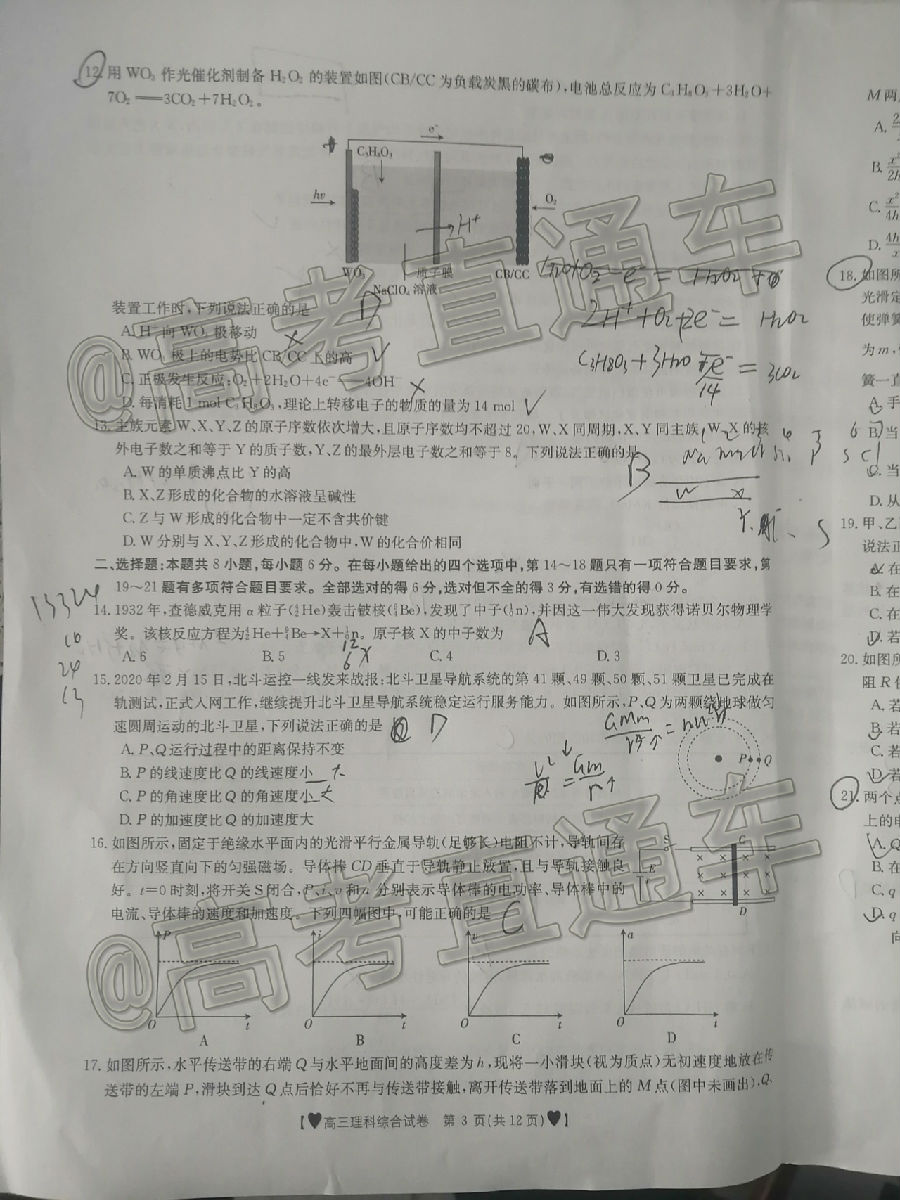 12. 用 WO₃ 作光催化剂制备 H₂O₂ 的装置如图(CB/CC 为负载炭黑的碳布),电池总反应为 C₃H₈O₃+3H₂O+
7O₂══3CO₂+7H₂O₂。
e⁻
C₃H₈O₃
hν
O₂
H⁺
WO₃ 质子膜 CB/CC
NaClO₄ 溶液
2H⁺+O₂+2e⁻=H₂O₂
C₃H₈O₃+3H₂O
14
3CO₂
装置工作时,下列说法正确的是 D
A. H⁺ 向 WO₃ 极移动 ×
B. WO₃ 极上的电势比 CB/CC 上的高 √
C. 正极发生反应:O₂+2H₂O+4e⁻══4OH⁻ ×
D. 每消耗 1 mol C₃H₈O₃,理论上转移电子的物质的量为 14 mol √
13. 主族元素 W、X、Y、Z 的原子序数依次增大,且原子序数均不超过 20,W、X 同周期,X、Y 同主族,W、X 的核
外电子数之和等于 Y 的质子数,Y、Z 的最外层电子数之和等于 8。下列说法正确的是 B
A. W 的单质沸点比 Y 的高
B. X、Z 形成的化合物的水溶液呈碱性
C. Z 与 W 形成的化合物中一定不含共价键
D. W 分别与 X、Y、Z 形成的化合物中,W 的化合价相同
W X
二、选择题:本题共 8 小题,每小题 6 分。在每小题给出的四个选项中,第 14～18 题只有一项符合题目要求,第
19～21 题有多项符合题目要求。全部选对的得 6 分,选对但不全的得 3 分,有选错的得 0 分。
14. 1932 年,查德威克用 α 粒子(⁴₂He)轰击铍核(⁹₄Be),发现了中子(¹₀n),并因这一伟大发现获得诺贝尔物理学
奖。该核反应方程为⁴₂He+⁹₄Be→X+¹₀n。原子核 X 的中子数为 A
A. 6 B. 5 C. 4 D. 3
12
6 X
15. 2020 年 2 月 15 日,北斗运控一线发来战报:北斗卫星导航系统的第 41 颗、49 颗、50 颗、51 颗卫星已完成在
轨测试,正式入网工作,继续提升北斗卫星导航系统稳定运行服务能力。如图所示,P、Q 为两颗绕地球做匀
速圆周运动的北斗卫星,下列说法正确的是 D
A. P、Q 运行过程中的距离保持不变
B. P 的线速度比 Q 的线速度小 大
C. P 的角速度比 Q 的角速度小 大
D. P 的加速度比 Q 的加速度大
P Q
16. 如图所示,固定于绝缘水平面内的光滑平行金属导轨(足够长)电阻不计,导轨间存
在方向竖直向下的匀强磁场。导体棒 CD 垂直于导轨静止放置,且与导轨接触良
好。t=0 时刻,将开关 S 闭合,P、i、v 和 a 分别表示导体棒的电功率、导体棒中的
电流、导体棒的速度和加速度。下列四幅图中,可能正确的是 C
S C
E
D
P i v a
O t O t O t O t
A B C D
17. 如图所示,水平传送带的右端 Q 与水平地面间的高度差为 h,现将一小滑块(视为质点)无初速度地放在传
送带的左端 P,滑块到达 Q 点后恰好不再与传送带接触,离开传送带落到地面上的 M 点(图中未画出)。Q、
【♥高三理科综合试卷 第 3 页(共 12 页)♥】
@高考直通车
@高考直通车
M 两
A.
B.
C.
D.
18. 如图所
光滑定
使弹簧
为 m,
簧一直
A. 手
B. 当
C. 当
D. 从
19. 甲、乙
说法正
A. 在
B. 在
C. 在
D. 若
20. 如图所
阻 R
A. 若
B. 若
C. 若
D. 若
21. 两个点
上的电
A. Q
B. 在
C. q
D. q
向